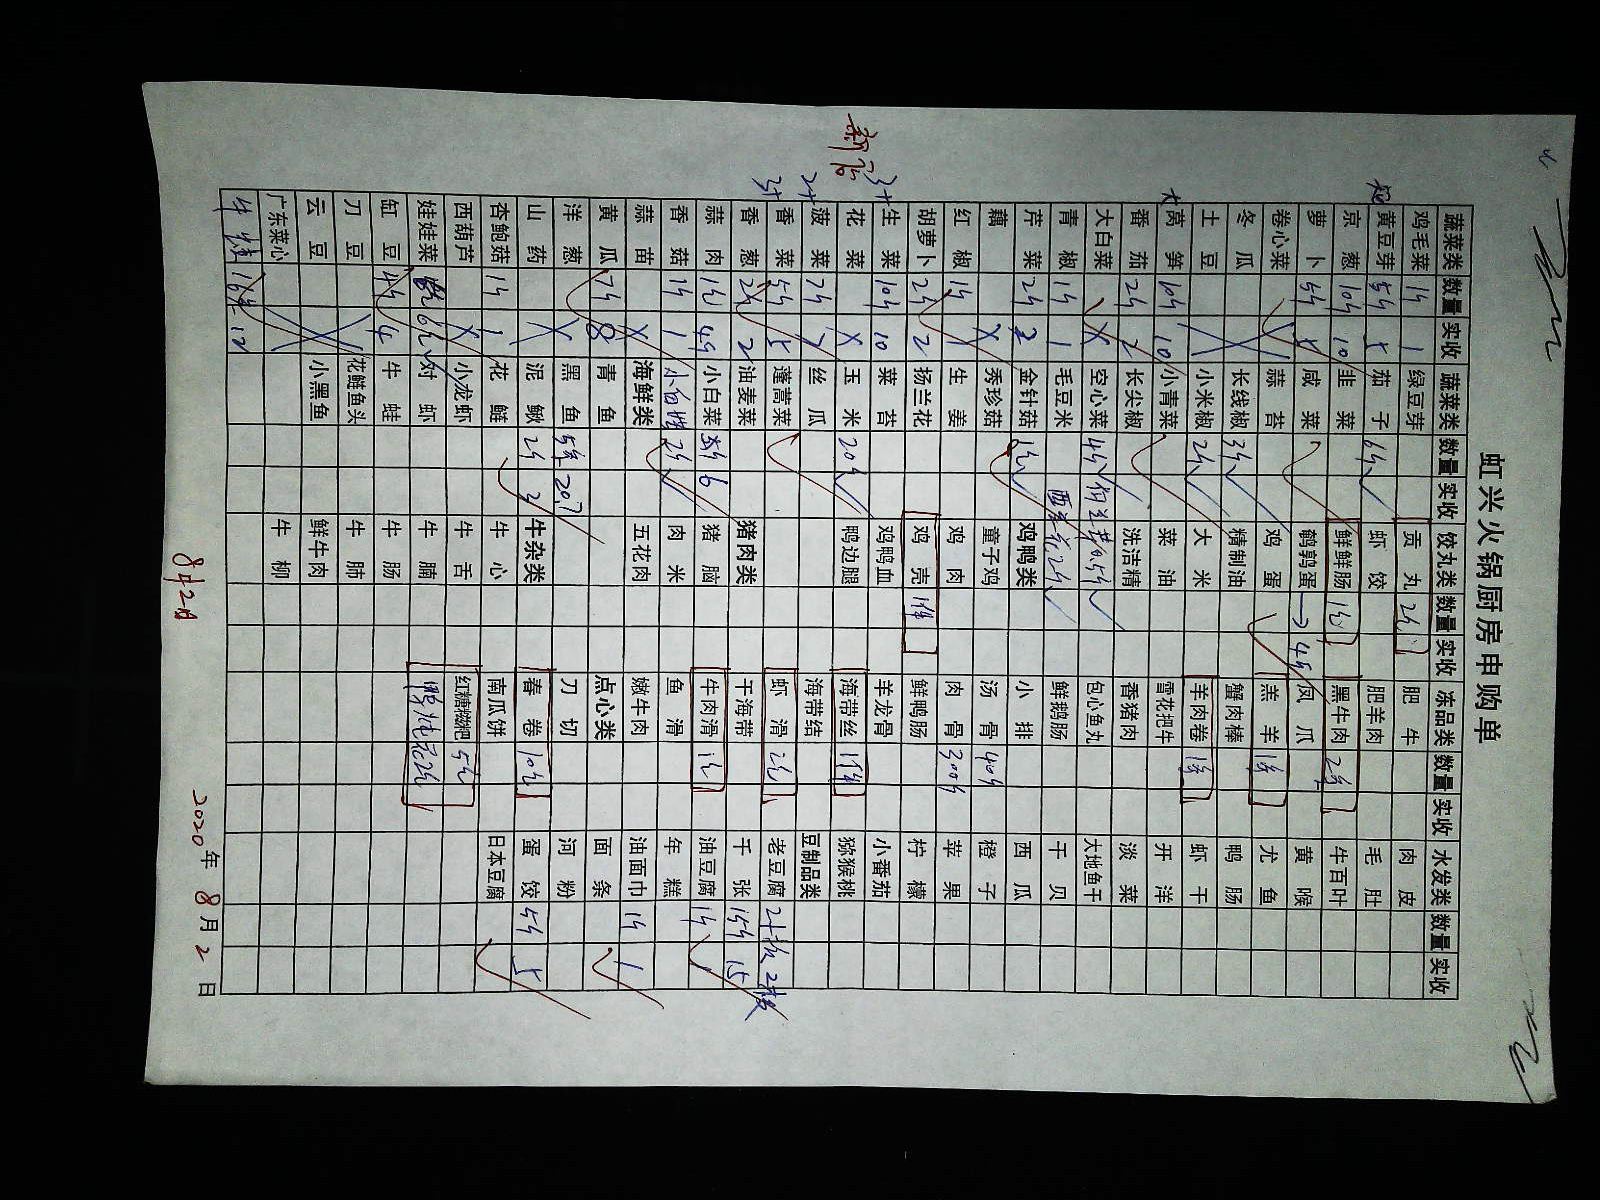 虹兴火锅厨房申购单
蔬菜类 数量 实收 蔬菜类 数量 实收 饺丸类 数量 实收 冻品类 数量 实收 水发类 数量 实收
鸡毛菜 1斤 1 绿豆芽 贡丸 2包 肥牛 肉皮
黄豆芽 5斤 5 茄子 6斤 虾饺 肥羊肉 毛肚
京葱 10斤 10 韭菜 鲜鲜肠 1包 黑牛肉 2件 牛百叶
萝卜 5斤 5 咸菜 鹌鹑蛋 → 4斤 凤爪 黄喉
卷心菜 蒜苔 鸡蛋 羔羊 1件 尤鱼
冬瓜 长线椒 3斤 精制油 蟹肉棒 鸭肠
土豆 小米椒 2斤 大米 羊肉卷 1件 虾干
大 莴笋 10斤 10 小青菜 菜油 雪花把牛 开洋
番茄 2斤 2 长尖椒 洗洁精 香猪肉 淡菜
大白菜 X 空心菜 4斤 包心鱼丸 大地鱼干
青椒 1斤 1 毛豆米 西兰花2斤 鲜鹅肠 干贝
芹菜 2斤 2 金针菇 1包 鸡鸭类 小排 西瓜
藕 X 秀珍菇 童子鸡 汤骨 40斤 橙子
红椒 1斤 1 生姜 鸡肉 肉骨 30斤 苹果
胡萝卜 2斤 2 扬兰花 鸡壳 1件 鲜鸭肠 柠檬
生菜 10斤 10 菜苔 鸡鸭血 羊龙骨 小番茄
花菜 X 玉米 20斤 鸭边腿 海带丝 1件 猕猴桃
菠菜 7斤 7 丝瓜 海带结 豆制品类
香菜 5斤 5 蓬蒿菜 虾滑 2包 老豆腐 2板 2板
香葱 2斤 2 油麦菜 猪肉类 干海带 千张 15斤 15
蒜肉 小白菜 6 猪脑 牛肉滑 1包 油豆腐 1斤
香菇 1斤 1 2斤 肉米 鱼滑 年糕
蒜苗 X 海鲜类 五花肉 嫩牛肉 油面巾 1斤 1
黄瓜 7斤 8 青鱼 点心类 面条
洋葱 X 黑鱼 5条 20.7 刀切 河粉
山药 X 泥鳅 2斤 2 牛杂类 春卷 10包 蛋饺 5斤 5
杏鲍菇 1斤 1 花鲢 牛心 南瓜饼 日本豆腐
西葫芦 X 小龙虾 牛舌 红糖糍粑 5包
娃娃菜 6包 对虾 牛腩
缸豆 4斤 4 牛蛙 牛肠
刀豆 花鲢鱼头 牛肺
云豆 小黑鱼 鲜牛肉
广东菜心 牛柳
牛蛙 12
新店
8月2日
2020年8月2日